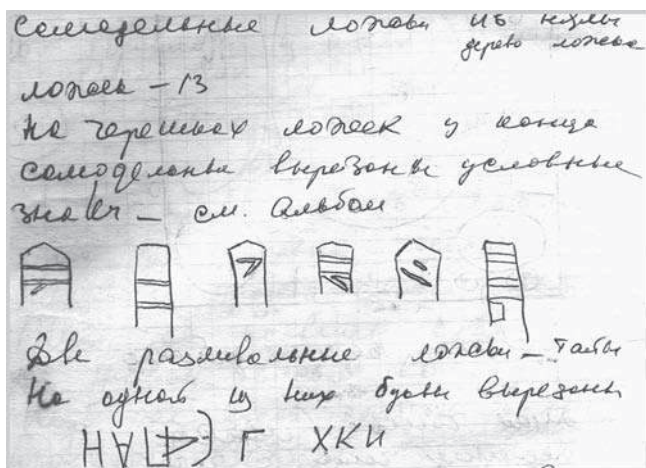 Самодельные ложки из
дерево ложка
ложек – 13
На черешках ложек у конца
самоделья вырезаны условные
знаки – см. Альбом
Две разливальные ложки –
На одной из них буквы вырезаны
Г ХКИ